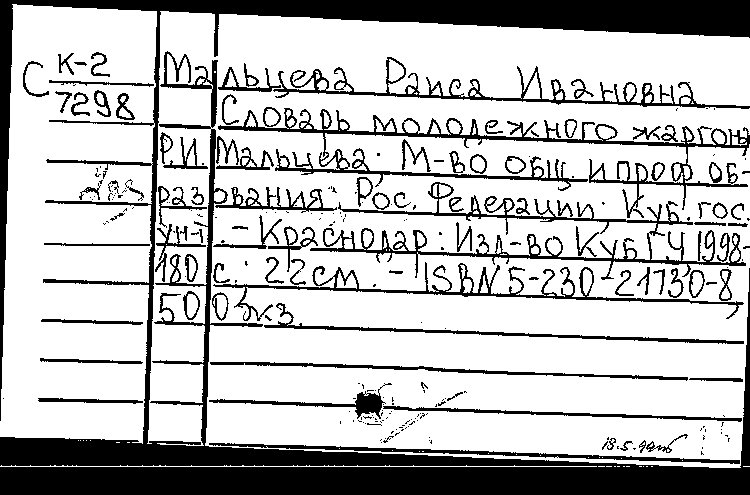 С К-2 Мальцева Раиса Ивановна
7298 Словарь молодежного жаргона
Р.И. Мальцева; М-во общ. и проф. об-
разования Рос. Федерации; Куб. гос.
ун-т. - Краснодар: Изд-во КубГУ 1998-
180 с.; 22 см. - ISBN 5-230-21730-8,
500 экз.
18.5.99